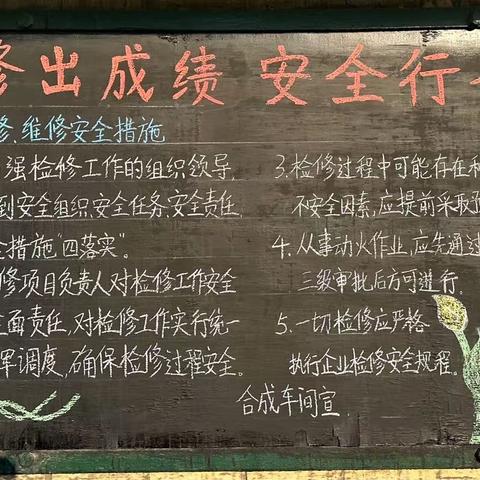 修出成绩 安全行
修、维修安全措施
强检修工作的组织领导，
到安全组织、安全任务、安全责任、
全措施"四落实"。
修项目负责人对检修工作安全
全面责任，对检修工作实行统一
挥调度，确保检修过程安全。
3.检修过程中可能存在和
不安全因素，应提前采取预
4.从事动火作业，应先通过
三级审批后方可进行。
5.一切检修应严格
执行企业检修安全规程。
合成车间宣